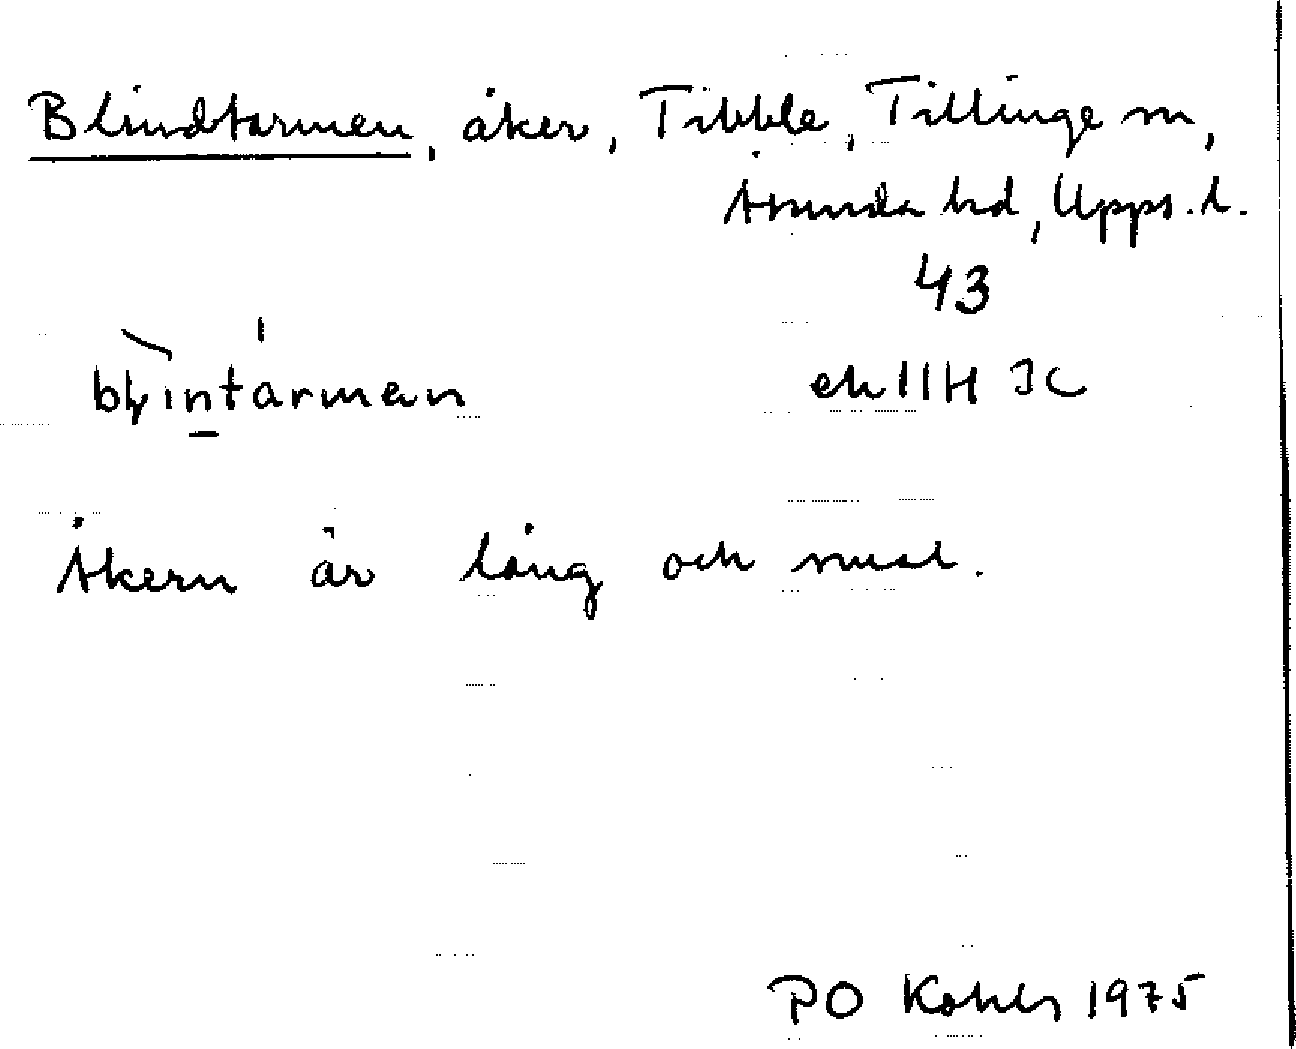 Blindtarmen, åker, Tibble, Tillinge sn,
Åsunda hd, Upps. l.
43
ek 11H IC
Åkern är lång och smal.
PO Kohls 1975